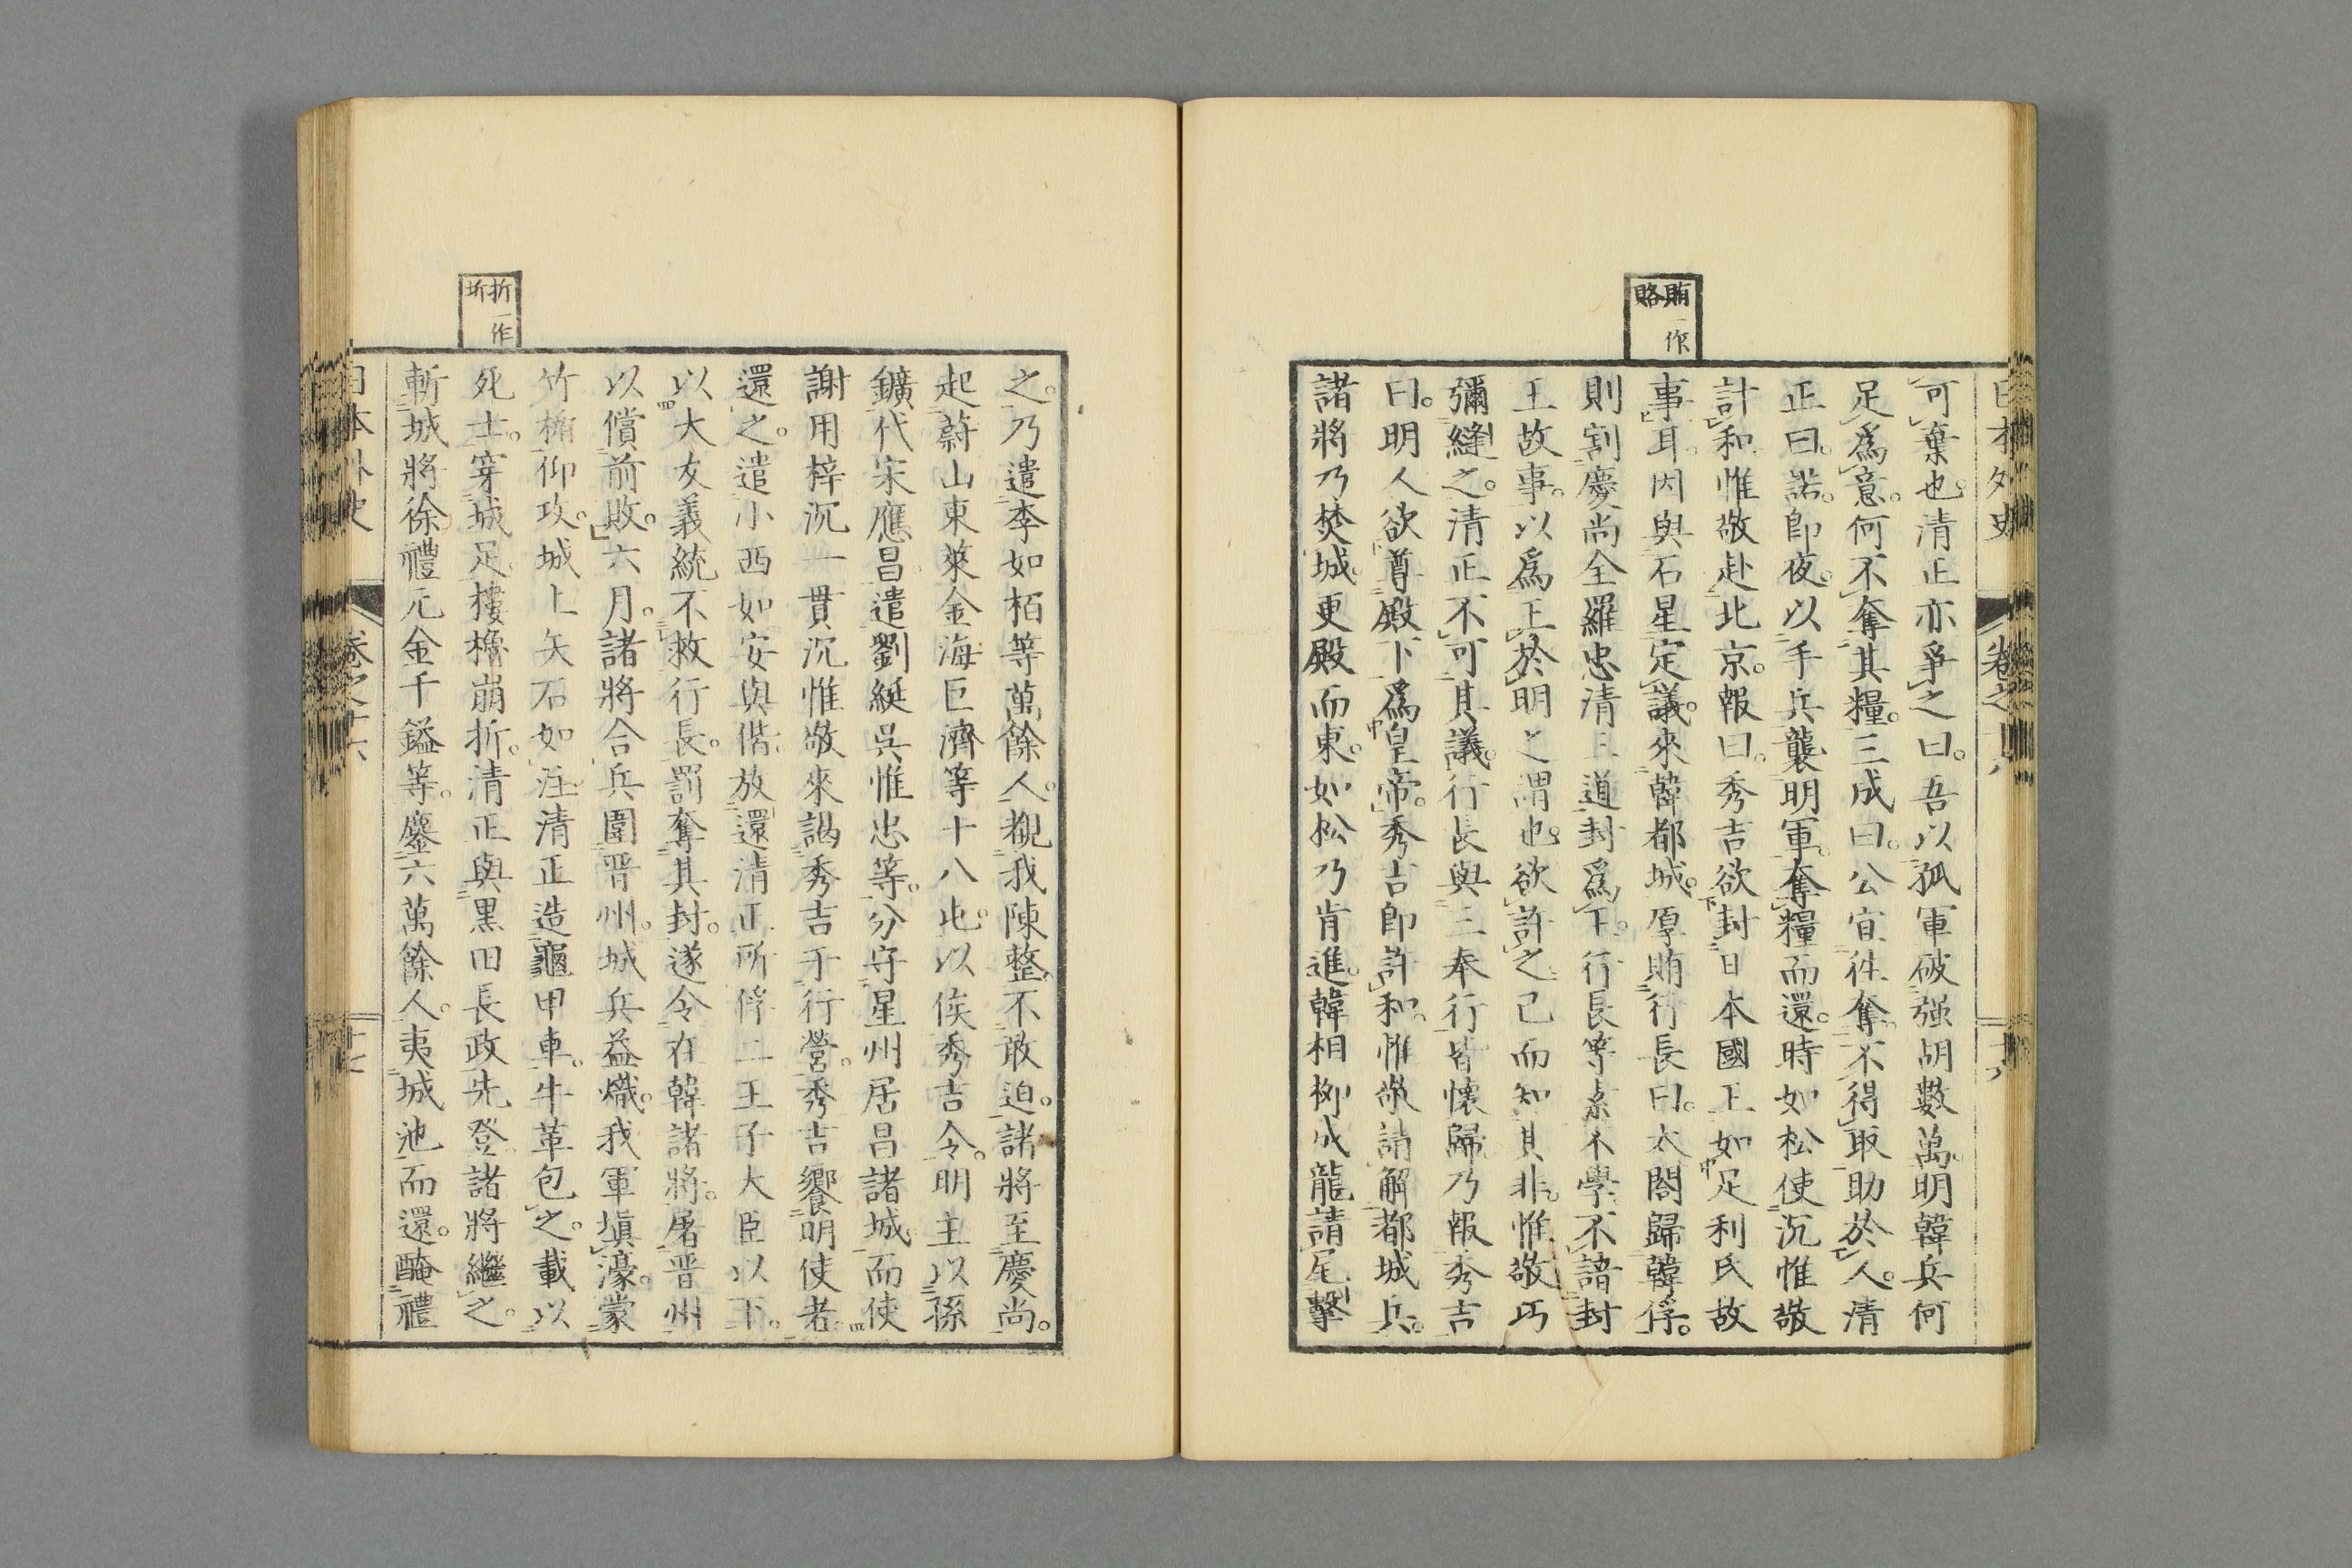 日本外史
卷之十六
賄一作
賂
可棄也。清正亦爭之曰。吾以孤軍破强胡數萬。明韓兵何
足爲意。何不奪其糧。三成曰。公宜往奪。不得取助於人。清
正曰。諾。卽夜。以手兵襲明軍。奪糧而還。時如松使沉惟敬
計和。惟敬赴北京。報曰。秀吉欲封日本國王如足利氏故
事耳。因與石星定議。來韓都城。厚賄行長曰。太閤歸韓俘。
則割慶尚全羅忠清三道。封爲王。行長等素不學。不諳封
王故事。以爲王於明之謂也。欲許之。已而知其非。惟敬巧
彌縫之。清正不可其議。行長與三奉行。皆懷歸。乃報秀吉
曰。明人欲尊殿下爲皇帝。秀吉卽許和。惟敬請解都城兵。
諸將乃焚城。更殿而東。如松乃肯進。韓相柳成龍請尾擊
折一作
圻
之。乃遣李如栢等萬餘人。覘我陳整。不敢迫。諸將至慶尚。
起蔚山東萊金海巨濟等十八屯。以俟秀吉令。明主以孫
鑛代宋應昌。遣劉綎吳惟忠等。分守星州居昌諸城。而使
謝用梓沉一貫沉惟敬來謁秀吉于行營。秀吉饗明使者。
還之。遣小西如安與偕。放還清正所俘二王子大臣以下。
以大友義統不救行長。罰奪其封。遂令在韓諸將。屠晋州
以償前敗。六月。諸將合兵圍晋州。城兵益熾。我軍塡濠。蒙
竹楯仰攻。城上矢石如注。清正造龜甲車。牛革包之。載以
死士。穿城足。樓櫓崩折。清正與黒田長政先登。諸將繼之。
斬城將徐禮元金千鎰等。鏖六萬餘人。夷城池而還。醃禮
日本外史
卷之十六
十七